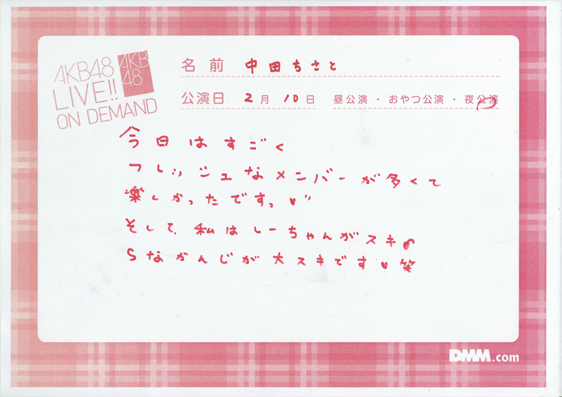 AKB48
LIVE!!
ON DEMAND
AKB
48
名前 中田ちさと
公演日 2月10日 昼公演・おやつ公演・夜公演
今日はすごく
フレッシュなメンバーが多くて
楽しかったですっ♥"
そして、私はしーちゃんがスキ
Sなかんじが大スキです♥笑
DMM.com